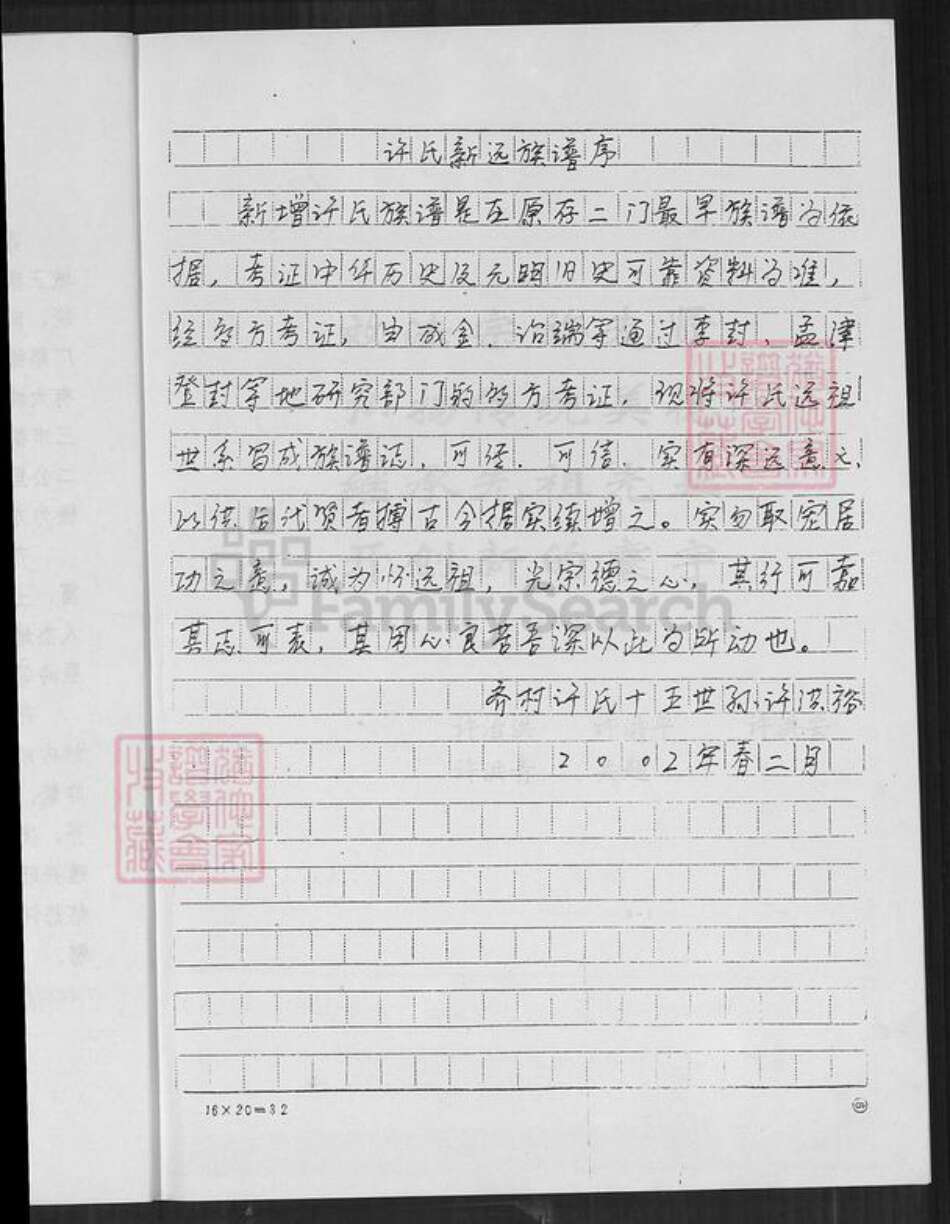 许氏新远族谱序
新增许氏族谱是在原存二门最早族谱为依
据，考证中华历史及元明旧史可靠资料为准，
经多方考证，由成金、治端等通过李封、孟津
登封等地研究部门的多方考证，现将许氏远祖
世系写成族谱志，可经．可信．实有深远意义，
以供后代贤者博古今据实续增之。实勿取宠居
功之意，诚为怀远祖，光宗德之心，其行可嘉
其志可表，其用心良苦吾深以此为所动也。
齐村许氏十五世孙许洪裕
2002年春二月
16×20=32
FamilySearch